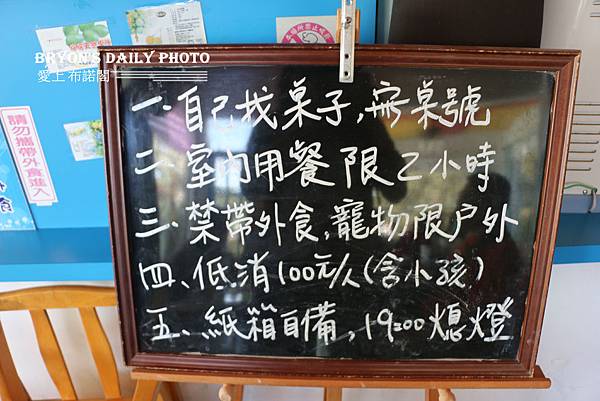 BRYON'S DAILY PHOTO
愛上 布諾閣
請勿攜帶外食進入
一、自己找桌子,無桌號
二、室內用餐限2小時
三、禁帶外食,寵物限户外
四、低消100元/人(含小孩)
五、紙箱自備,19:00熄燈